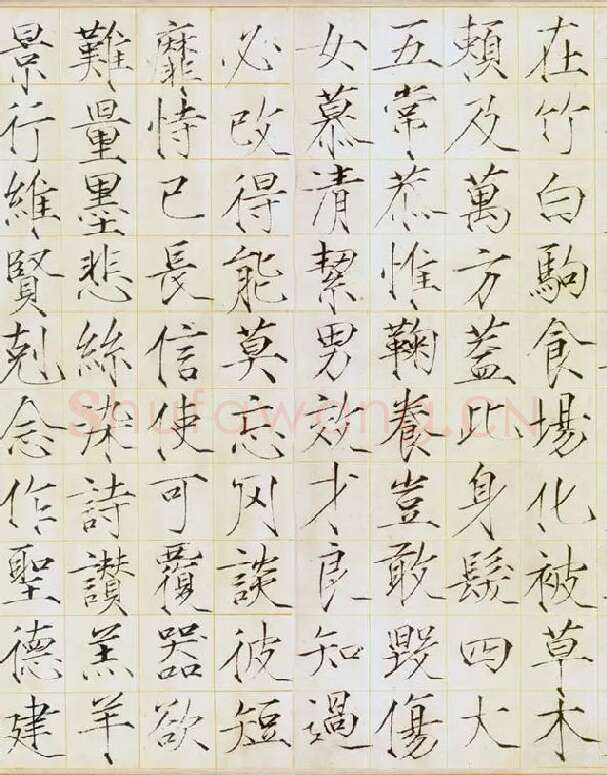 在竹白駒食場化被草木
賴及萬方蓋此身髮四大
五常恭惟鞠養豈敢毀傷
女慕清絜男效才良知過
必改得能莫忘罔談彼短
靡恃己長信使可覆器欲
難量墨悲絲染詩讚羔羊
景行維賢剋念作聖德建
Shufawang.CN